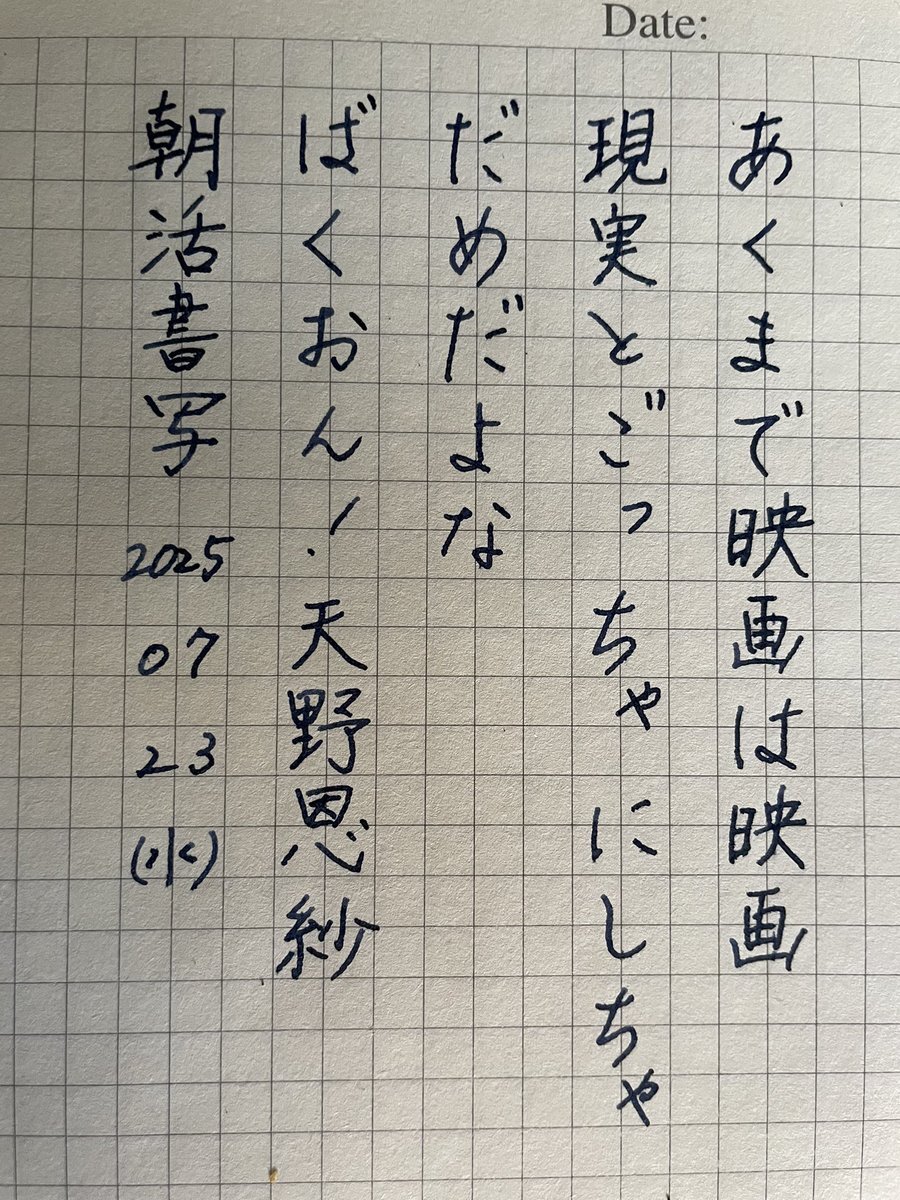 Date:
あくまで映画は映画
現実とごっちゃにしちゃ
だめだよな
ばくおん！天野恩紗
朝活書写 2025 07 23 (水)